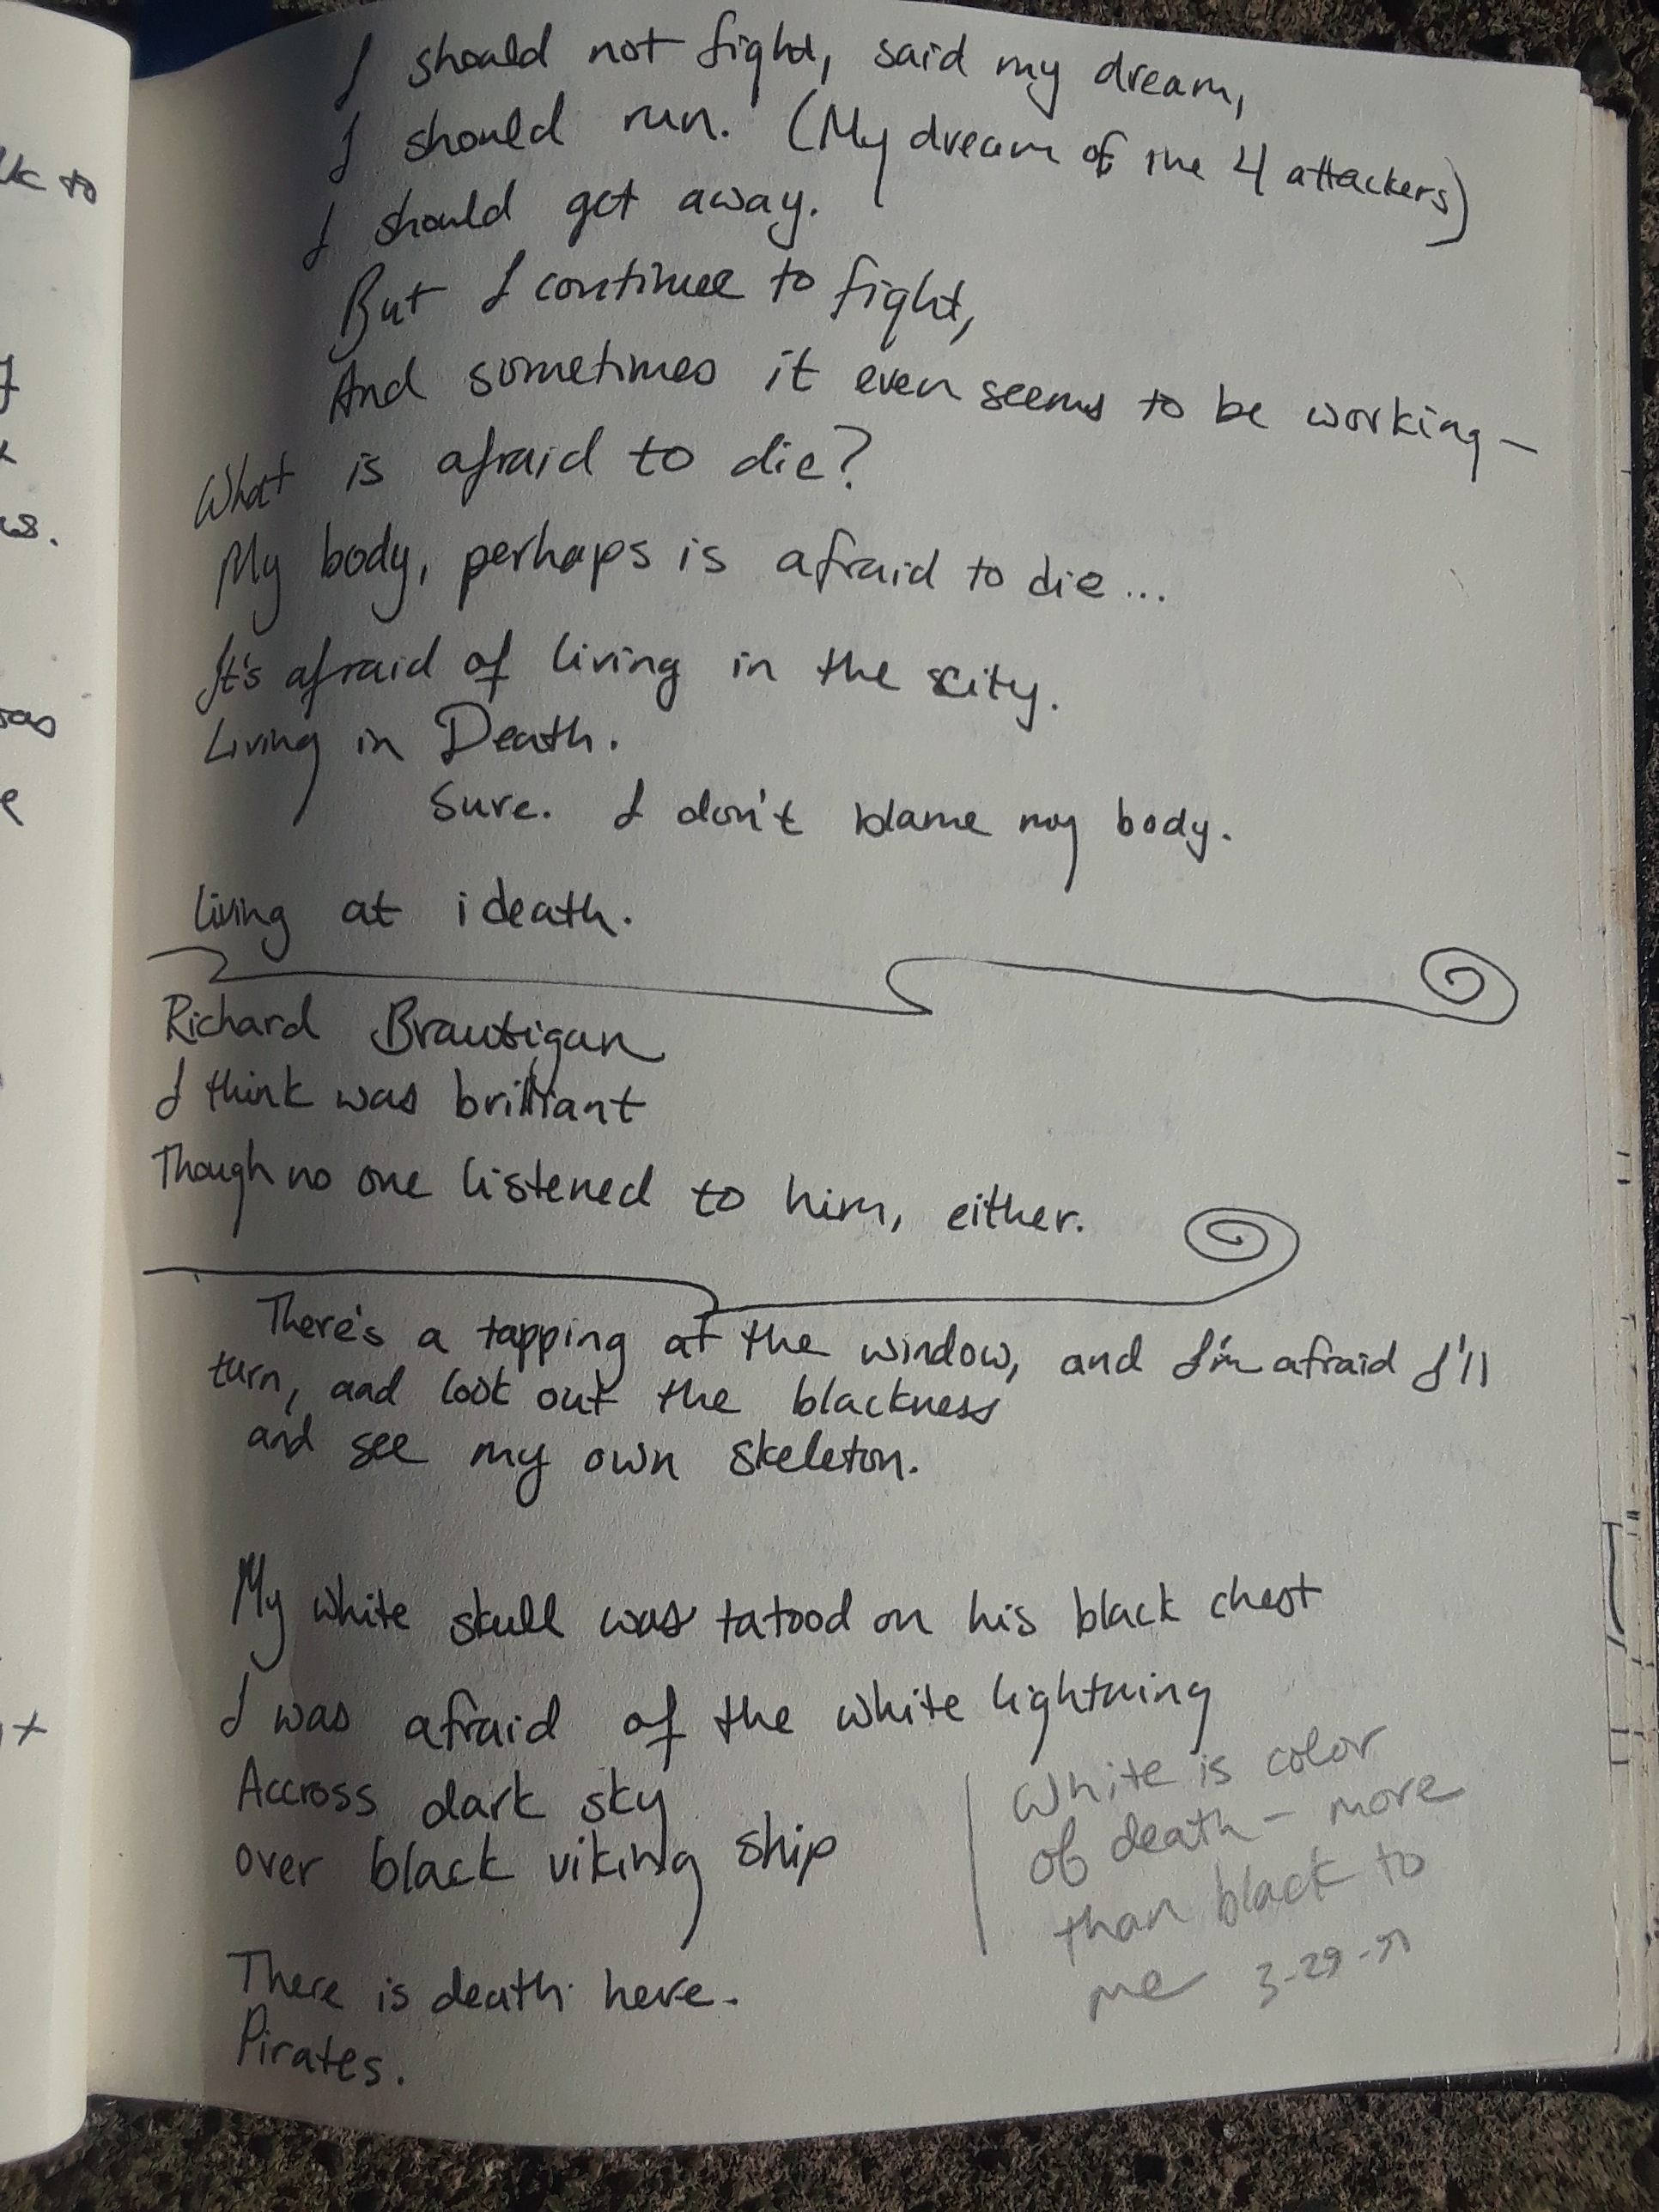 I should not fight, said my dream,
I should run. (My dream of the 4 attackers)
I should get away.
But I continue to fight,
And sometimes it even seems to be working -
What is afraid to die?
My body, perhaps is afraid to die...
It's afraid of living in the city.
Living in Death.
Sure. I don't blame my body.
living at ideath.
Richard Brautigan
I think was brilliant
Though no one listened to him, either.
There's a tapping at the window, and I'm afraid I'll
turn, and look out the blackness
and see my own skeleton.
My white skull was tatood on his black chest
I was afraid of the white lightning
Accross dark sky
over black viking ship
White is color
of death - more
than black to
me 3-29-91
There is death here.
Pirates.